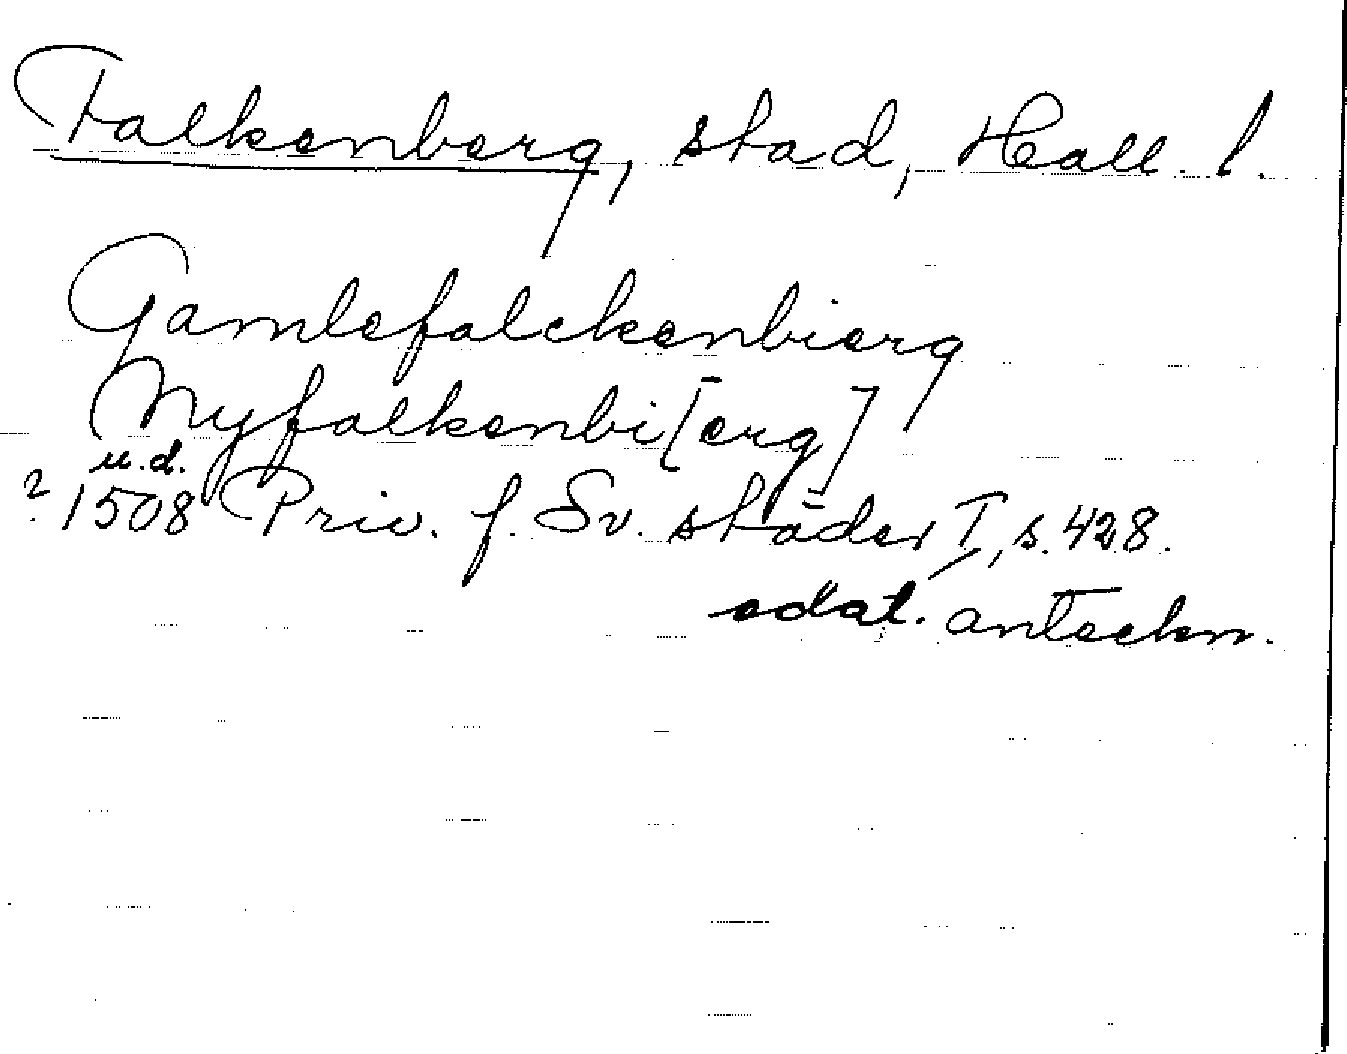 Falkenberg, stad, Hall. l.
Gamlefalckenbierg
Nyfalkenbi[erg]
u.d.
? 1508 Priv. f. Sv. städer I, s. 428.
odat. anteckn.